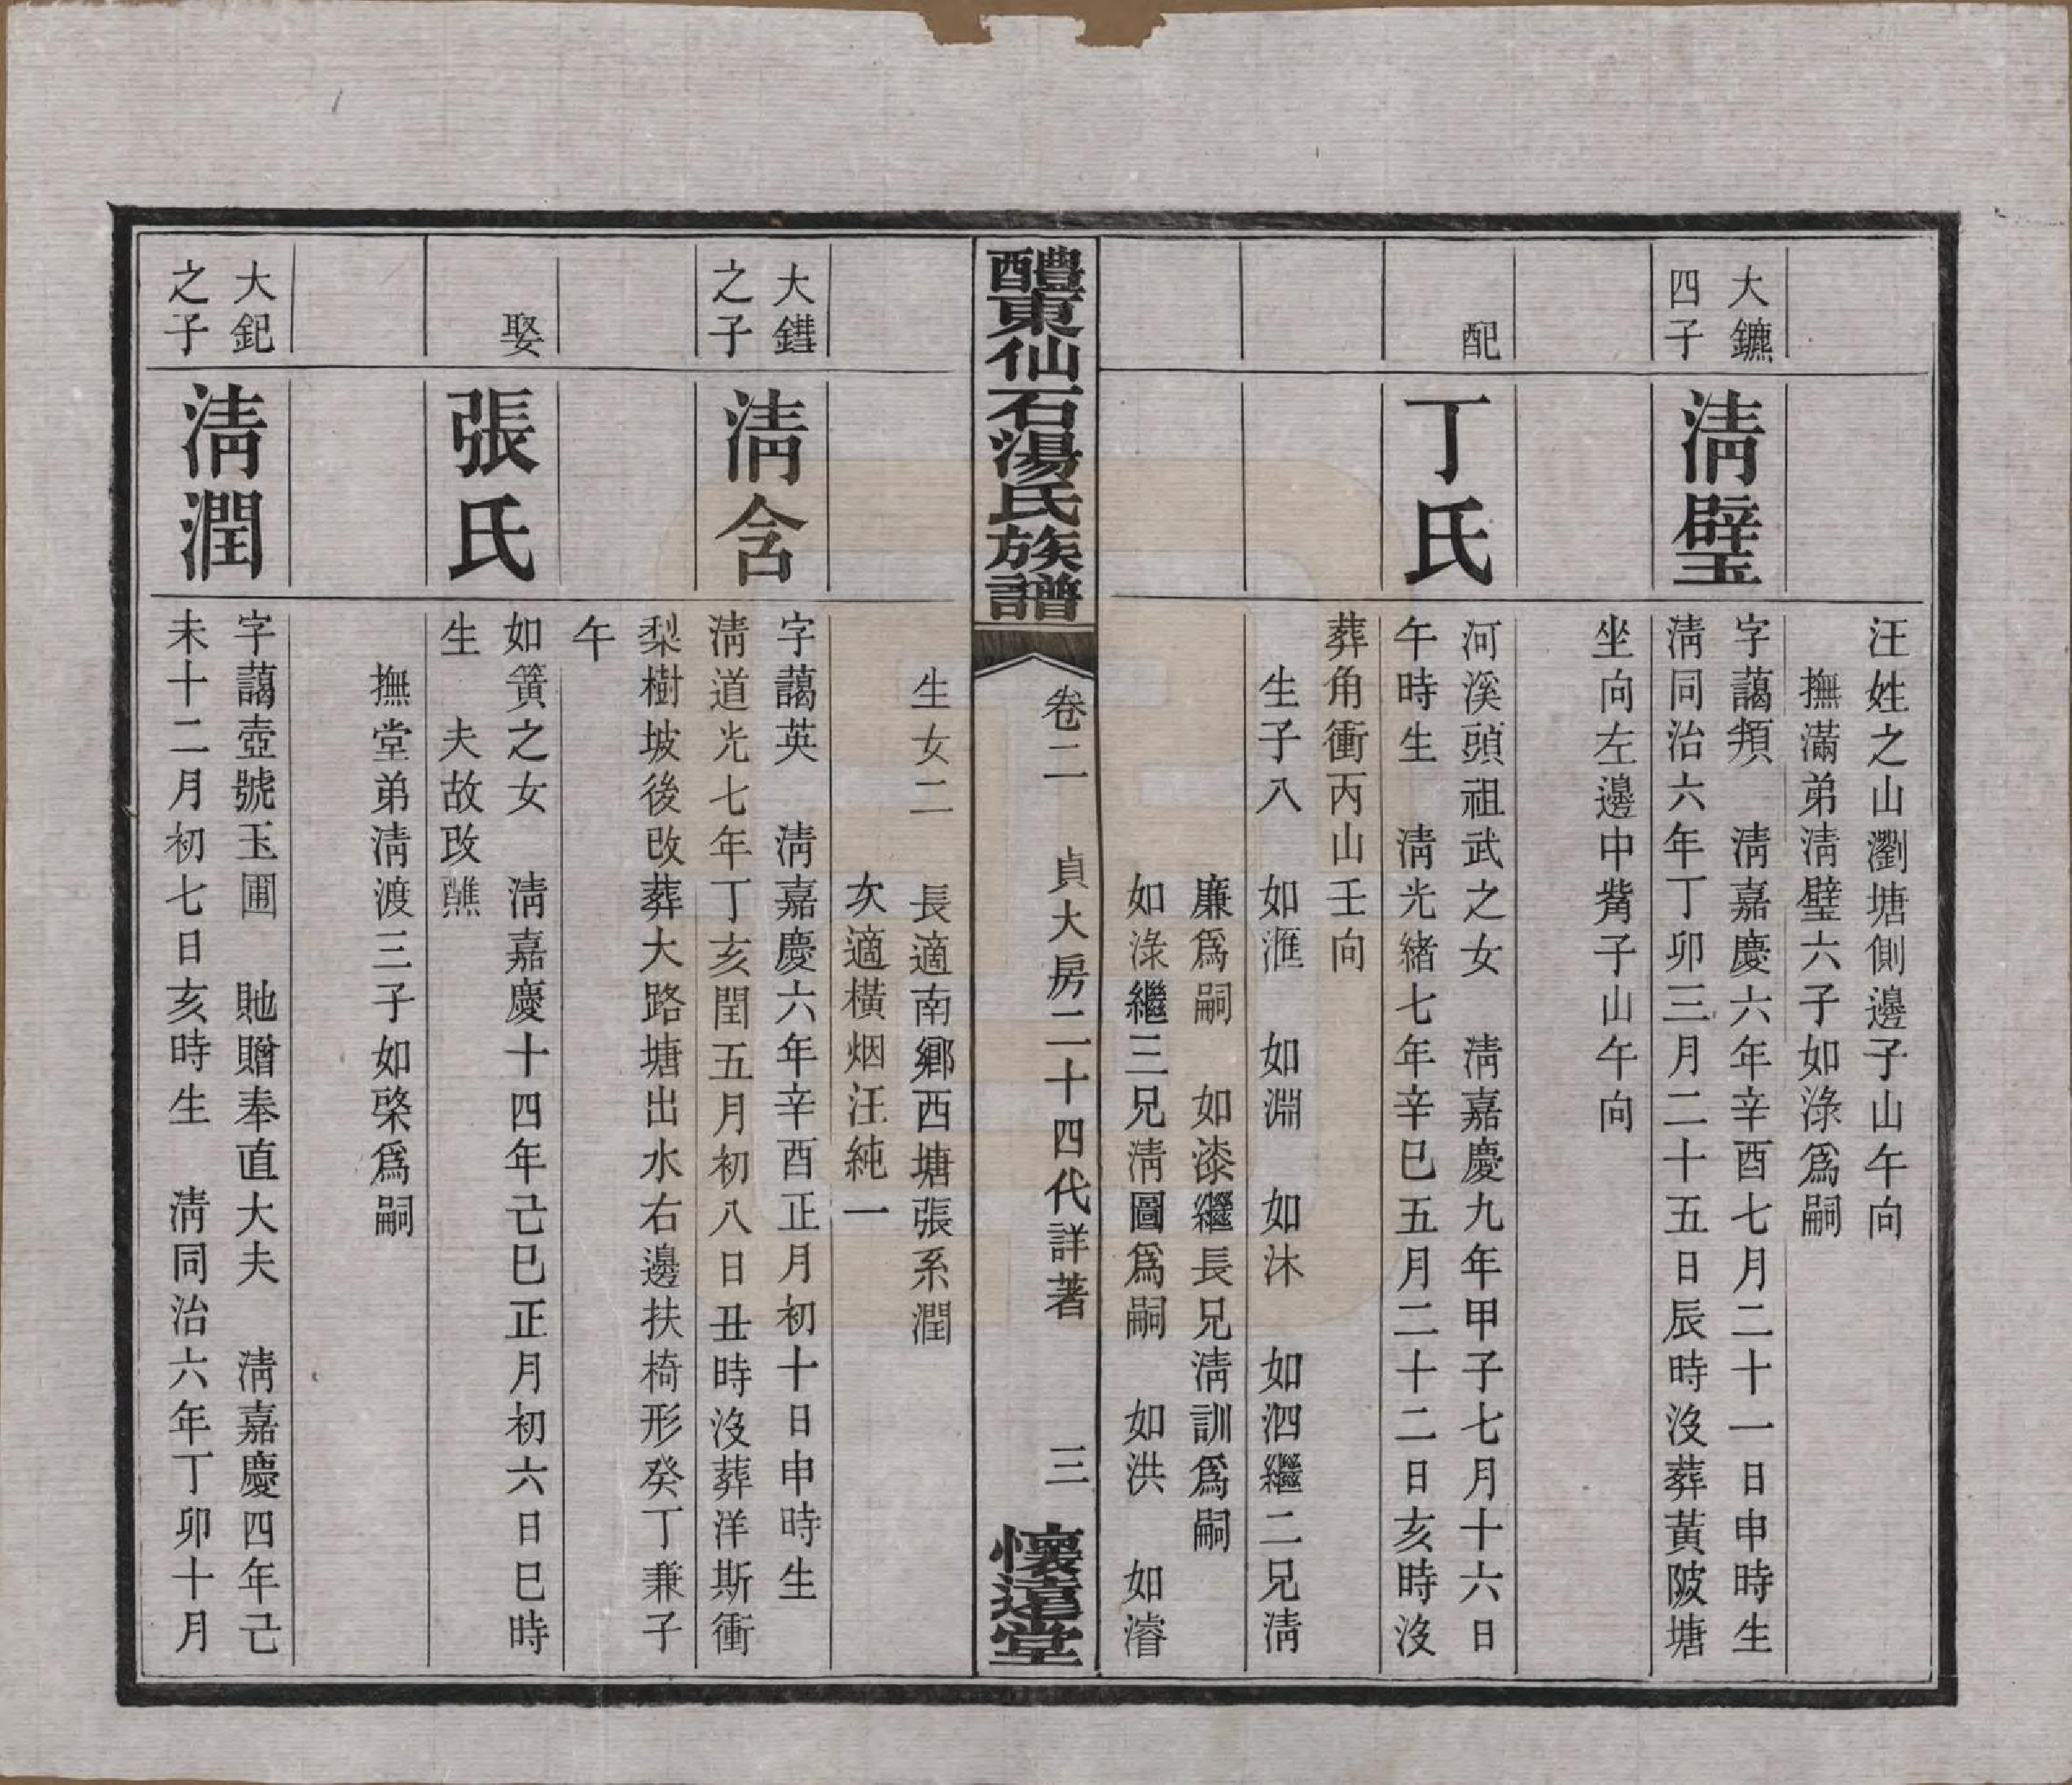 汪姓之山瀏塘側邊子山午向
撫滿弟淸璧六子如淥爲嗣
大鑣
四子
淸璧
字藹䫌　淸嘉慶六年辛酉七月二十一日申時生
淸同治六年丁卯三月二十五日辰時沒葬黃陂塘
坐向左邊中觜子山午向
配
丁氏
河溪頭祖武之女　淸嘉慶九年甲子七月十六日
午時生　淸光緒七年辛巳五月二十二日亥時沒
葬角衝丙山壬向
生子八　如滙　如淵　如沐　如泗繼二兄淸
廉爲嗣　如漆繼長兄淸訓爲嗣
如淥繼三兄淸圖爲嗣　如洪　如濬
醴東仙石湯氏族譜
卷二　貞大房二十四代詳著　三
懷遠堂
生女二　長適南鄉西塘張系潤
次適橫烟汪純一
大鐟
之子
淸含
字藹英　淸嘉慶六年辛酉正月初十日申時生
淸道光七年丁亥閏五月初八日丑時沒葬洋斯衝
梨樹坡後改葬大路塘出水右邊扶椅形癸丁兼子
午
娶
張氏
如簧之女　淸嘉慶十四年己巳正月初六日巳時
生　夫故改醮
撫堂弟淸渡三子如棨爲嗣
大鈀
之子
淸潤
字藹壺號玉圃　貤贈奉直大夫　淸嘉慶四年己
未十二月初七日亥時生　淸同治六年丁卯十月